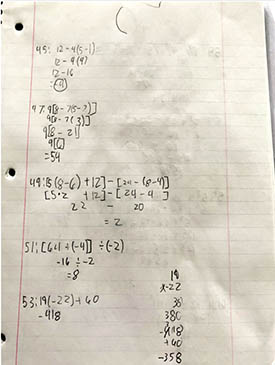 45: 12-4(5-1)
12-4(4)
12-16
=-4
47: 9[8-7(5-2)]
9[8-7(3)]
9[8-21]
9[6]
=54
49: [5(8-6)+12]-[24-(8-4)]
[5·2+12]-[24-4]
22 - 20
= 2
51: [6·4÷(-4)]÷(-2)
-16÷-2
=8
53: 19(-22)+60
-418
19
x-22
38
380
-418
+60
-358